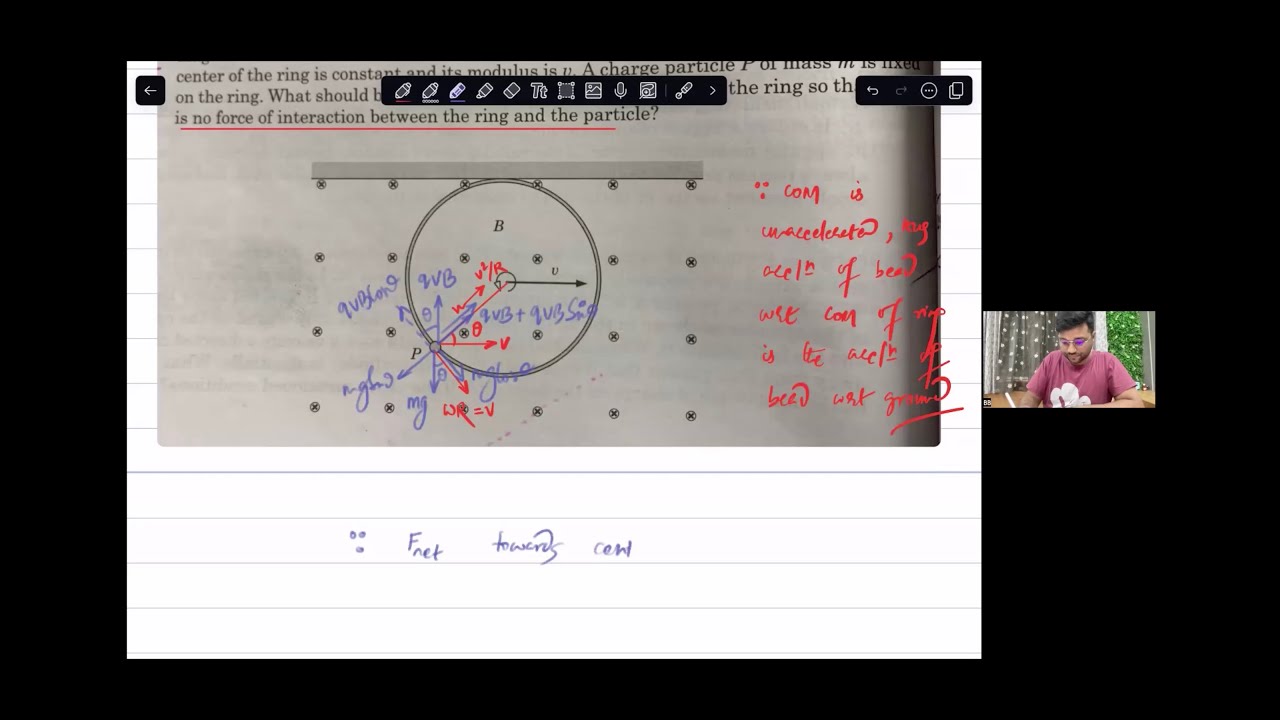 center of the ring is constant and its modulus is v. A charge particle P of mass m is fixed
on the ring. What should b the ring so th
is no force of interaction between the ring and the particle?
Tt
B
v
P
qvBcosθ
qvB
v²/R
qvB + qvB Sinθ
θ
θ
v
θ
mgcosθ
mg
ωR = v
∵ COM is
unaccelerated,
accln of bead
wrt COM of ring
is the accln of
bead wrt ground
∵ Fnet towards cent
BB